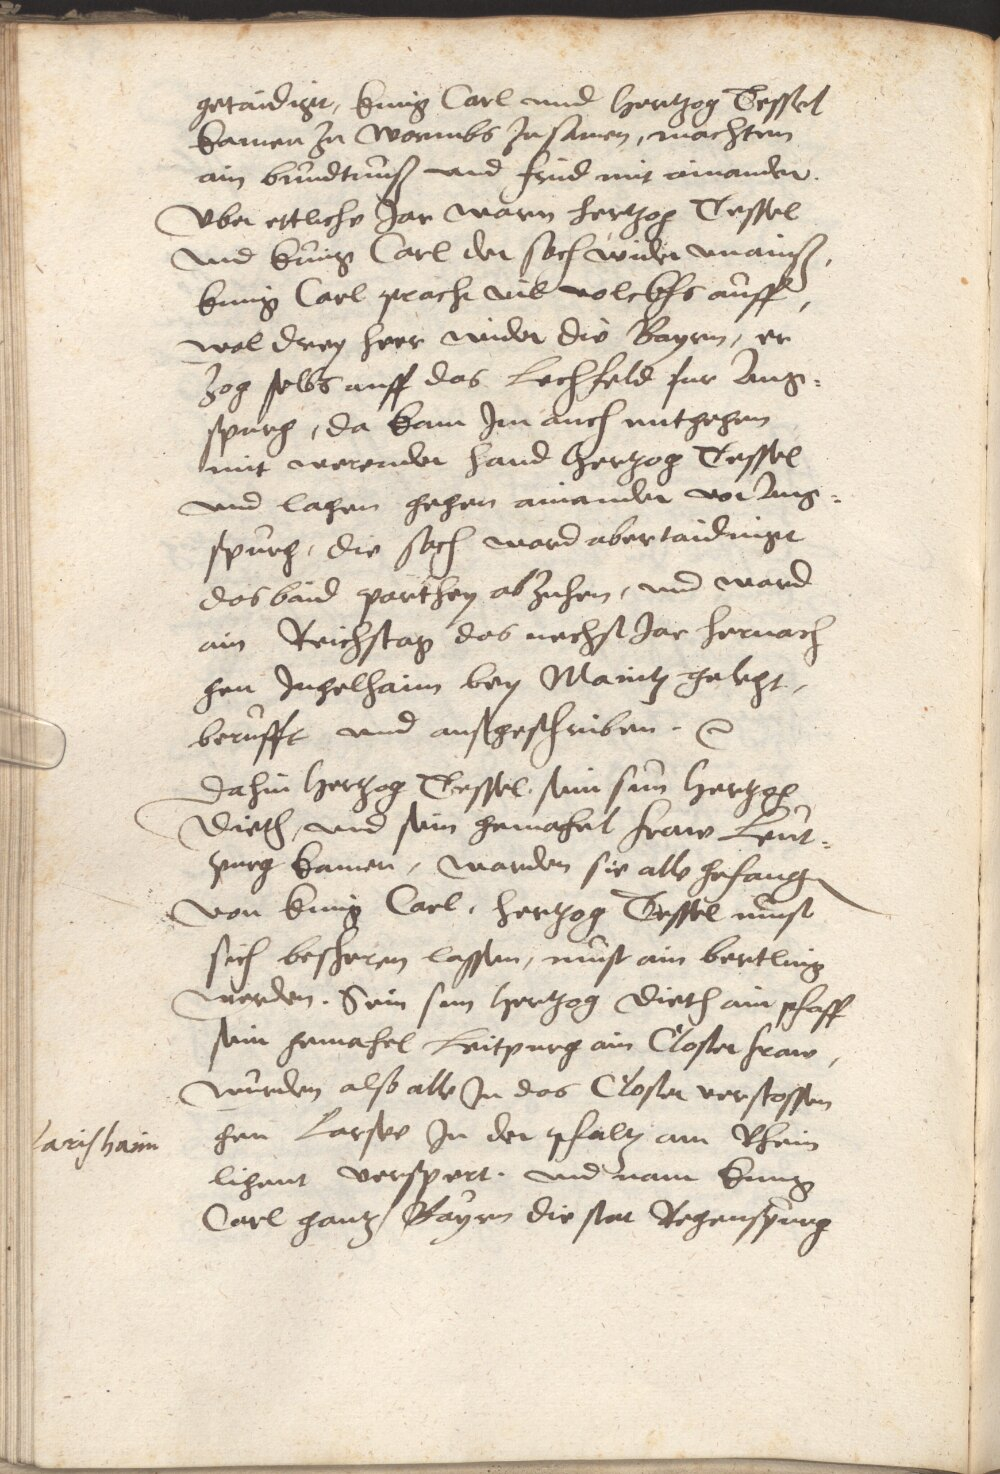 getaidigt, kunig Carl und Hertzog Tessel
kamen zu Wormbs zusamen, machten
ain bundtnuß und frid mit ainander.
Uber ettliche Jar warn hertzog Tessel
und kunig Carl der sach wider unainß,
kunig Carl pracht vil volckhs auff,
wol drey heer wider die Bayrn, er
zog selbs auff das Lechfeld fur Aug=
spurg, da kam Im auch entgegen
mit werender hand Hertzog Tessel
und lagen gegen ainander vor Aug=
spurg, die sach ward abertaidingt
das baid parthey abzugen, und ward
ain Reichstag das nechst Jar hernach
gen Ingelhaim bey Maintz gelegt,
berufft und außgeschriben.
Dahin Hertzog Tessel, sein sun Hertzog
Dieth, und sein gemahel fraw Leut=
purg kamen, warden sie alle gefangen
von kunig Carl, Hertzog Tessel must
sich bescheren lassen, must ain bertling
werden. Sein sun Hertzog Dieth ain pfaff
sein gemahel Leitpurg ain Closter fraw,
wurden also alle In das Closter verstossen
gen Larsee In der pfaltz am Rhein
larishaim
ligent verspert. und nam kunig
Carl gantz Bayrn die stat Regenspurg